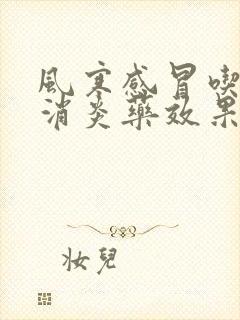 風寒感冒喫
消炎藥效果
妝兒